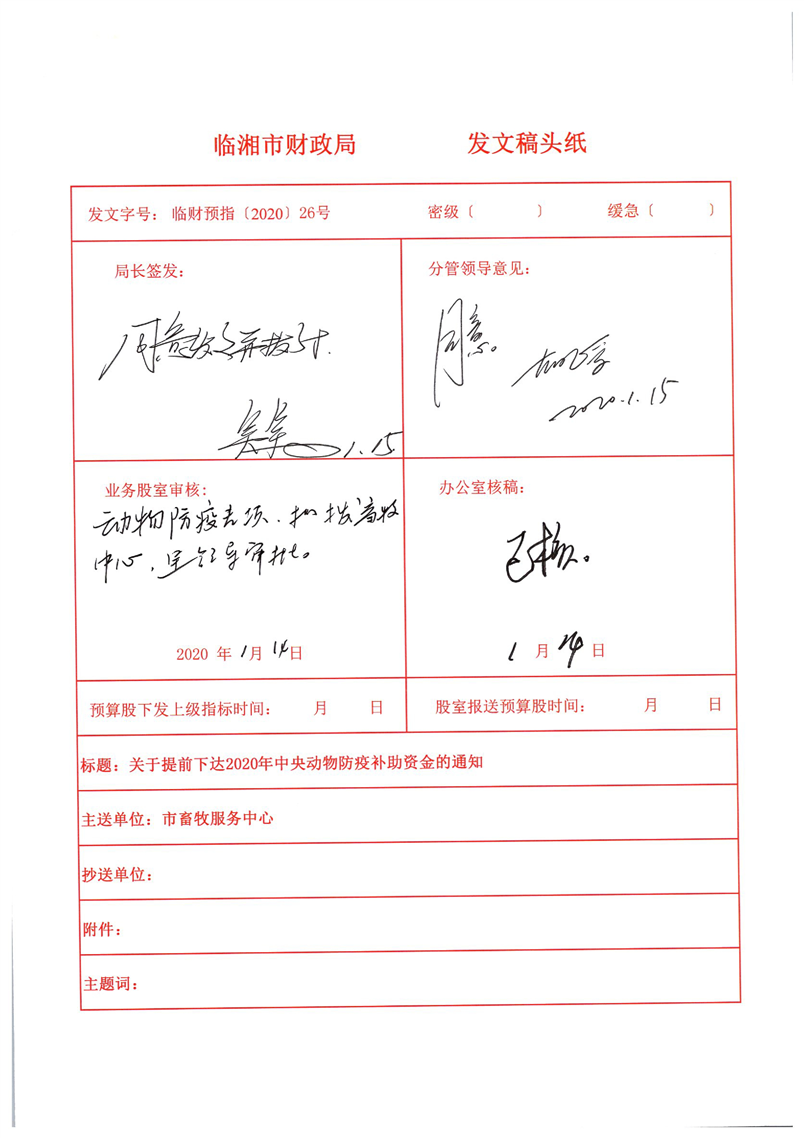 临湘市财政局 发文稿头纸
发文字号: 临财预指〔2020〕26号 密级〔 〕 缓急〔 〕
局长签发:
1.15
分管领导意见:
同意。
2020.1.15
业务股室审核:
动物防疫专项,拟拨畜牧
中心,呈领导审批。
2020 年 1 月 14 日
办公室核稿:
已核。
1 月 14 日
预算股下发上级指标时间: 月 日 股室报送预算股时间: 月 日
标题: 关于提前下达2020年中央动物防疫补助资金的通知
主送单位: 市畜牧服务中心
抄送单位:
附件:
主题词: